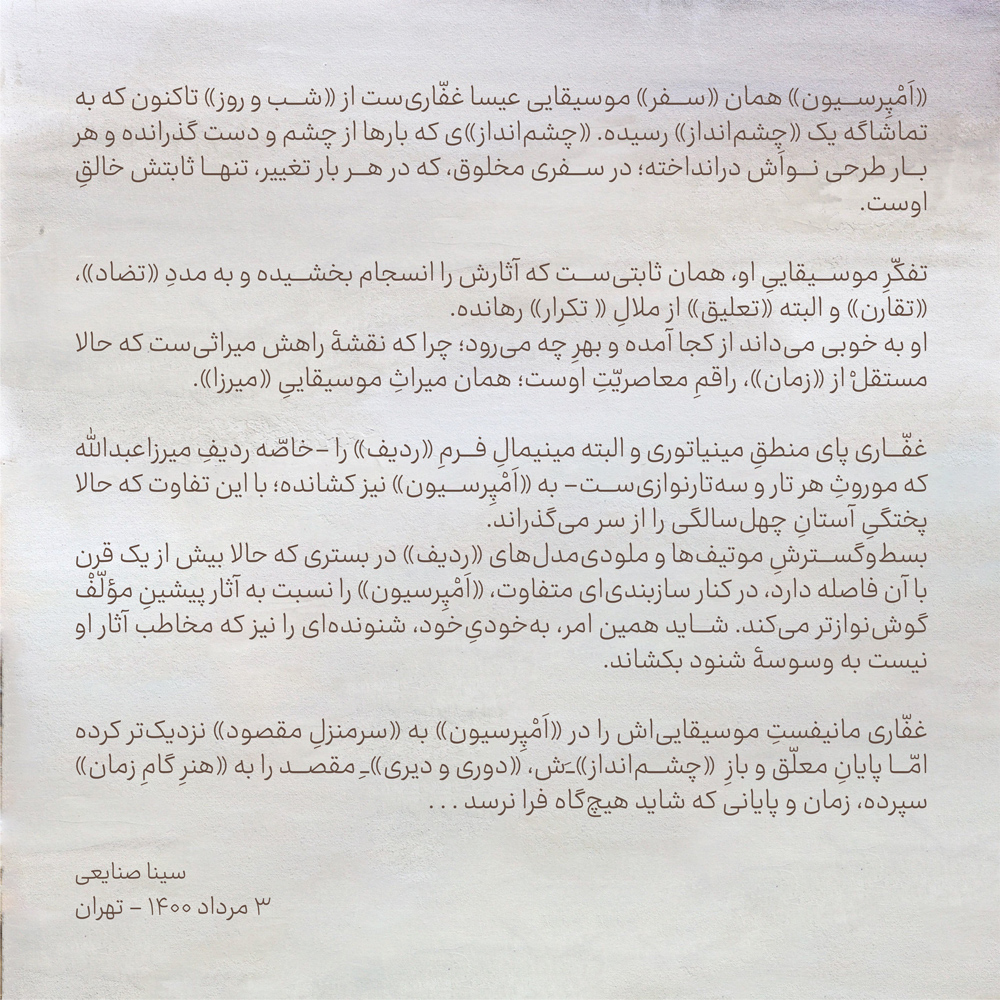 «اَمْپِرسـیون» همان «سـفر» موسیقایی عیسا غفّاری‌ست از «شـب و روز» تاکنون که به
تماشاگه یک «چشم‌انداز» رسیده. «چشم‌انداز»ی که بارها از چشم و دست گذرانده و هر
بـار طرحی نـواَش درانداخته؛ در سـفری مخلوق، که در هـر بار تغییر، تنهـا ثابتش خالقِ
اوست.
تفکّرِ موسـیقاییِ او، همان ثابتی‌سـت که آثارش را انسجام بخشـیده و به مددِ «تضاد»،
«تقارن» و البته «تعلیق» از ملالِ « تکرار» رهانده.
او به خوبی می‌داند از کجا آمده و بهرِ چه می‌رود؛ چرا که نقشهٔ راهش میراثی‌ست که حالا
مستقلْ از «زمان»، راقمِ معاصریّتِ اوست؛ همان میراثِ موسیقاییِ «میرزا».
غفّـاری پای منطقِ مینیاتوری و البته مینیمالِ فـرمِ «ردیف» را -خاصّه ردیفِ میرزاعبدالله
که موروثِ هر تار و سه‌تارنوازی‌سـت- به «اَمْپِرسـیون» نیز کشانده؛ با این تفاوت که حالا
پختگیِ آستانِ چهل‌سالگی را از سر می‌گذراند.
بسط‌وگسـترشِ موتیف‌ها و ملودی‌مدل‌های «ردیف» در بستری که حالا بیش از یک قرن
با آن فاصله دارد، در کنار سازبندی‌ای متفاوت، «اَمْپِرسیون» را نسبت به آثار پیشینِ مؤلّفْ
گوش‌نوازتر می‌کند. شـاید همین امر، به‌خودیِ‌خود، شنونده‌ای را نیز که مخاطب آثار او
نیست به وسوسهٔ شنود بکشاند.
غفّاری مانیفستِ موسیقایی‌اش را در «اَمْپِرسیون» به «سرمنزلِ مقصود» نزدیک‌تر کرده
امّـا پایانِ معلّق و بازِ «چشـم‌انداز»ـَش، «دوری و دیری»ـِ مقصـد را به «هنرِ گامِ زمان»
سپرده، زمان و پایانی که شاید هیچ‌گاه فرا نرسد . . .
سینا صنایعی
۳ مرداد ۱۴۰۰ - تهران